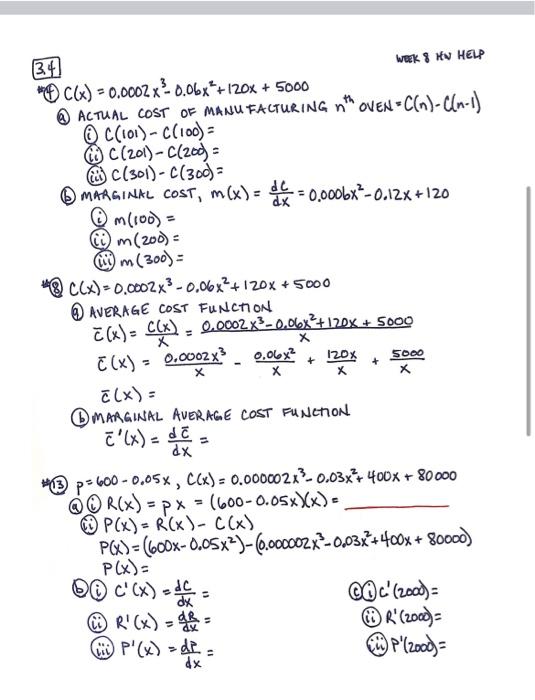 WEEK 8 HW HELP
3.4
#4 C(x) = 0.0002x³ - 0.06x² + 120x + 5000
(a) ACTUAL COST OF MANUFACTURING nth OVEN = C(n) - C(n-1)
(i) C(101) - C(100) =
(ii) C(201) - C(200) =
(iii) C(301) - C(300) =
(b) MARGINAL COST, m(x) = dC/dx = 0.0006x² - 0.12x + 120
(i) m(100) =
(ii) m(200) =
(iii) m(300) =
#8 C(x) = 0.0002x³ - 0.06x² + 120x + 5000
(a) AVERAGE COST FUNCTION
c̄(x) = C(x)/x = 0.0002x³ - 0.06x² + 120x + 5000/x
c̄(x) = 0.0002x³/x - 0.06x²/x + 120x/x + 5000/x
c̄(x) =
(b) MARGINAL AVERAGE COST FUNCTION
c̄'(x) = dc̄/dx =
#13 p = 600 - 0.05x, C(x) = 0.000002x³ - 0.03x² + 400x + 80000
(a) (i) R(x) = px = (600 - 0.05x)(x) =
(ii) P(x) = R(x) - C(x)
P(x) = (600x - 0.05x²) - (0.000002x³ - 0.03x² + 400x + 80000)
P(x) =
(b) (i) C'(x) = dC/dx =
(ii) R'(x) = dR/dx =
(iii) P'(x) = dP/dx =
(c) (i) C'(2000) =
(ii) R'(2000) =
(iii) P'(2000) =